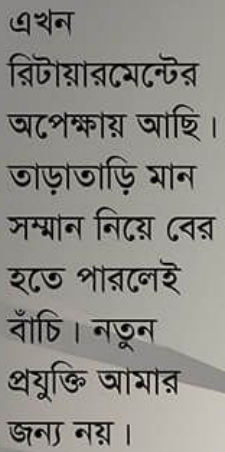 এখন
রিটায়ারমেন্টের
অপেক্ষায় আছি।
তাড়াতাড়ি মান
সম্মান নিয়ে বের
হতে পারলেই
বাঁচি। নতুন
প্রযুক্তি আমার
জন্য নয়।